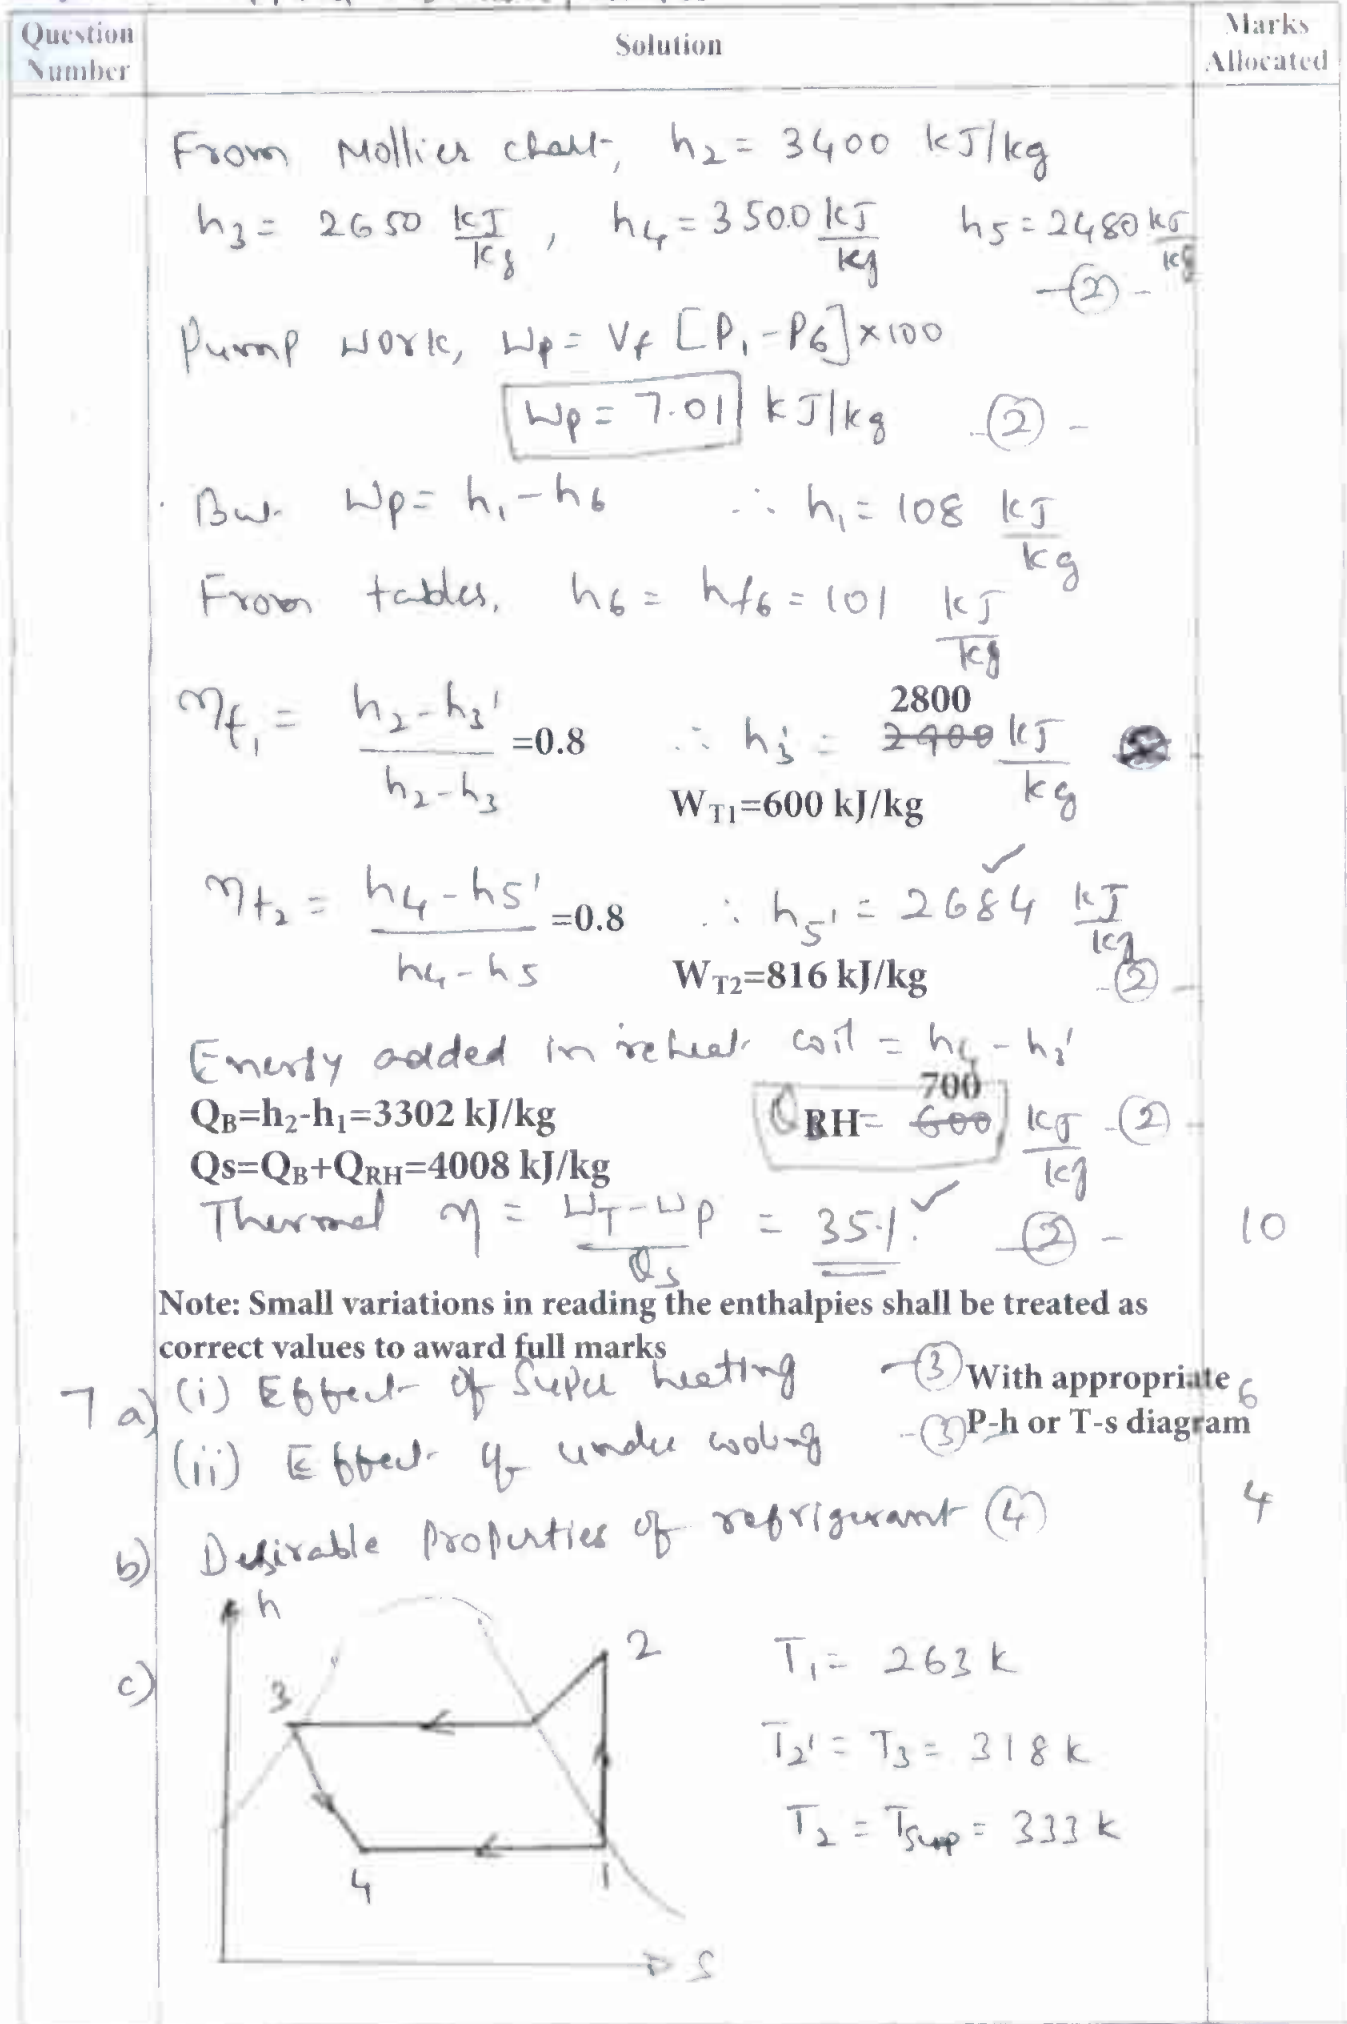 Question Number
Solution
Marks Allocated
From Mollier chart, h₂ = 3400 kJ/kg
h₃ = 2650 kJ/kg , h₄ = 3500 kJ/kg h₅ = 2480 kJ/kg
-(2)-
Pump work, Wp = Vf [P₁ - P₆] x 100
Wp = 7.01 kJ/kg -(2)-
But Wp = h₁ - h₆ ∴ h₁ = 108 kJ/kg
From tables, h₆ = hf₆ = 101 kJ/kg
ηt₁ = (h₂ - h₃')/(h₂ - h₃) =0.8 ∴ h₃' = 2800 ~~2900~~ kJ/kg
W_T1=600 kJ/kg
ηt₂ = (h₄ - h₅')/(h₄ - h₅) =0.8 ∴ h₅' = 2684 ✓ kJ/kg
W_T2=816 kJ/kg -(2)-
Energy added in reheat coil = h₄ - h₃'
Q_B=h₂-h₁=3302 kJ/kg Q RH= 700 ~~600~~ kJ/kg -(2)-
Qs=Q_B+Q_RH=4008 kJ/kg
Thermal η = (W_T - Wp)/Qs = 35%. ✓ -(2)- 10
Note: Small variations in reading the enthalpies shall be treated as
correct values to award full marks
7 a) (i) Effect of Super heating -(3) With appropriate 6
(ii) Effect of under cooling -(3) P-h or T-s diagram
b) Desirable Properties of refrigerant (4) 4
c)
h
2
3
4
1
S
T₁ = 263 K
T₂' = T₃ = 318 K
T₂ = Tsup = 333 K